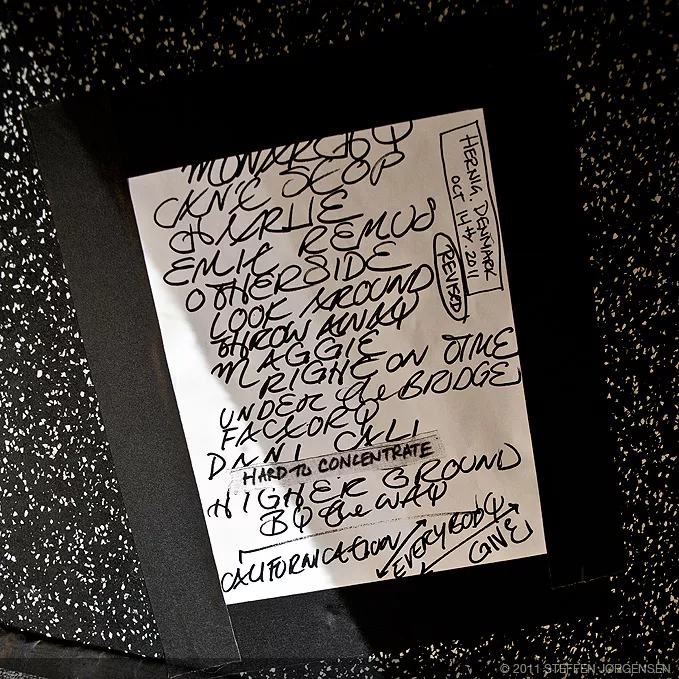 MONARCHY
CAN'T STOP
CHARLIE
EMIT REMUS
OTHERSIDE
LOOK AROUND
THROW AWAY
MAGGIE
RIGHT ON TIME
UNDER the BRIDGE
FACTORY
DANI CALI
HARD TO CONCENTRATE
HIGHER GROUND
BY the WAY
CALIFORNICATION
EVERYBODY
GIVE
HERNIG, DENMARK
OCT 14th, 2011
REVISED
© 2011 STEFFEN JØRGENSEN